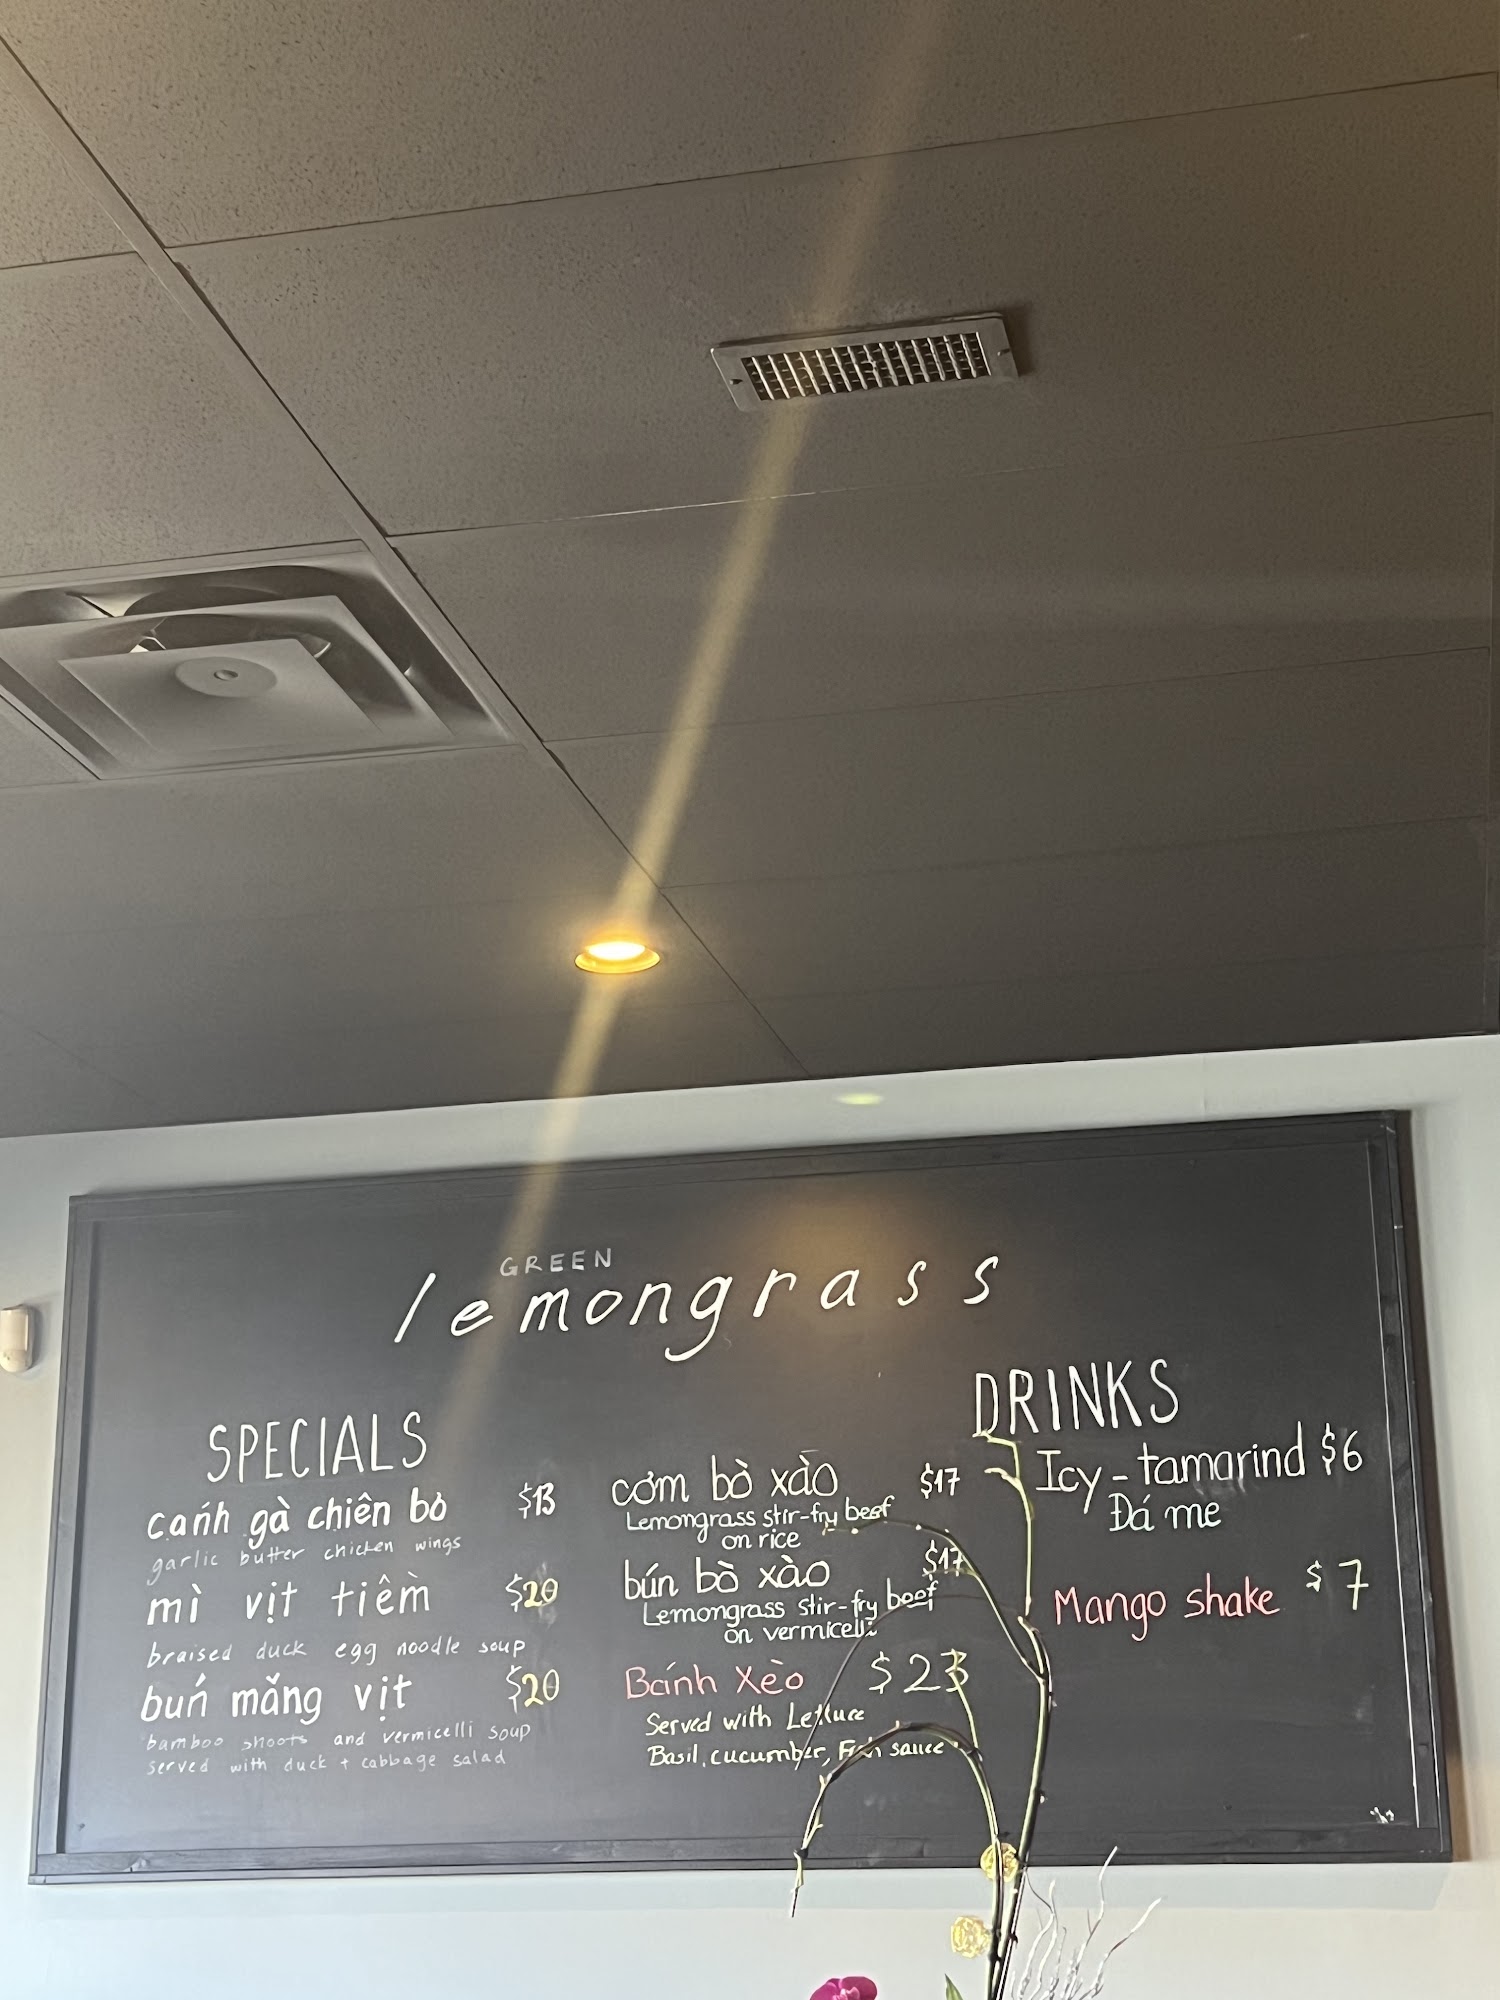 GREEN
lemongrass
SPECIALS
cánh gà chiên bơ $13
garlic butter chicken wings
mì vịt tiềm $20
braised duck egg noodle soup
bún măng vịt $20
bamboo shoots and vermicelli soup
served with duck + cabbage salad
cơm bò xào $17
Lemongrass stir-fry beef
on rice
bún bò xào $17
Lemongrass stir-fry beef
on vermicelli
Bánh Xèo $23
Served with Lettuce
Basil, cucumber, Fish sauce
DRINKS
Icy-tamarind $6
Đá me
Mango shake $7